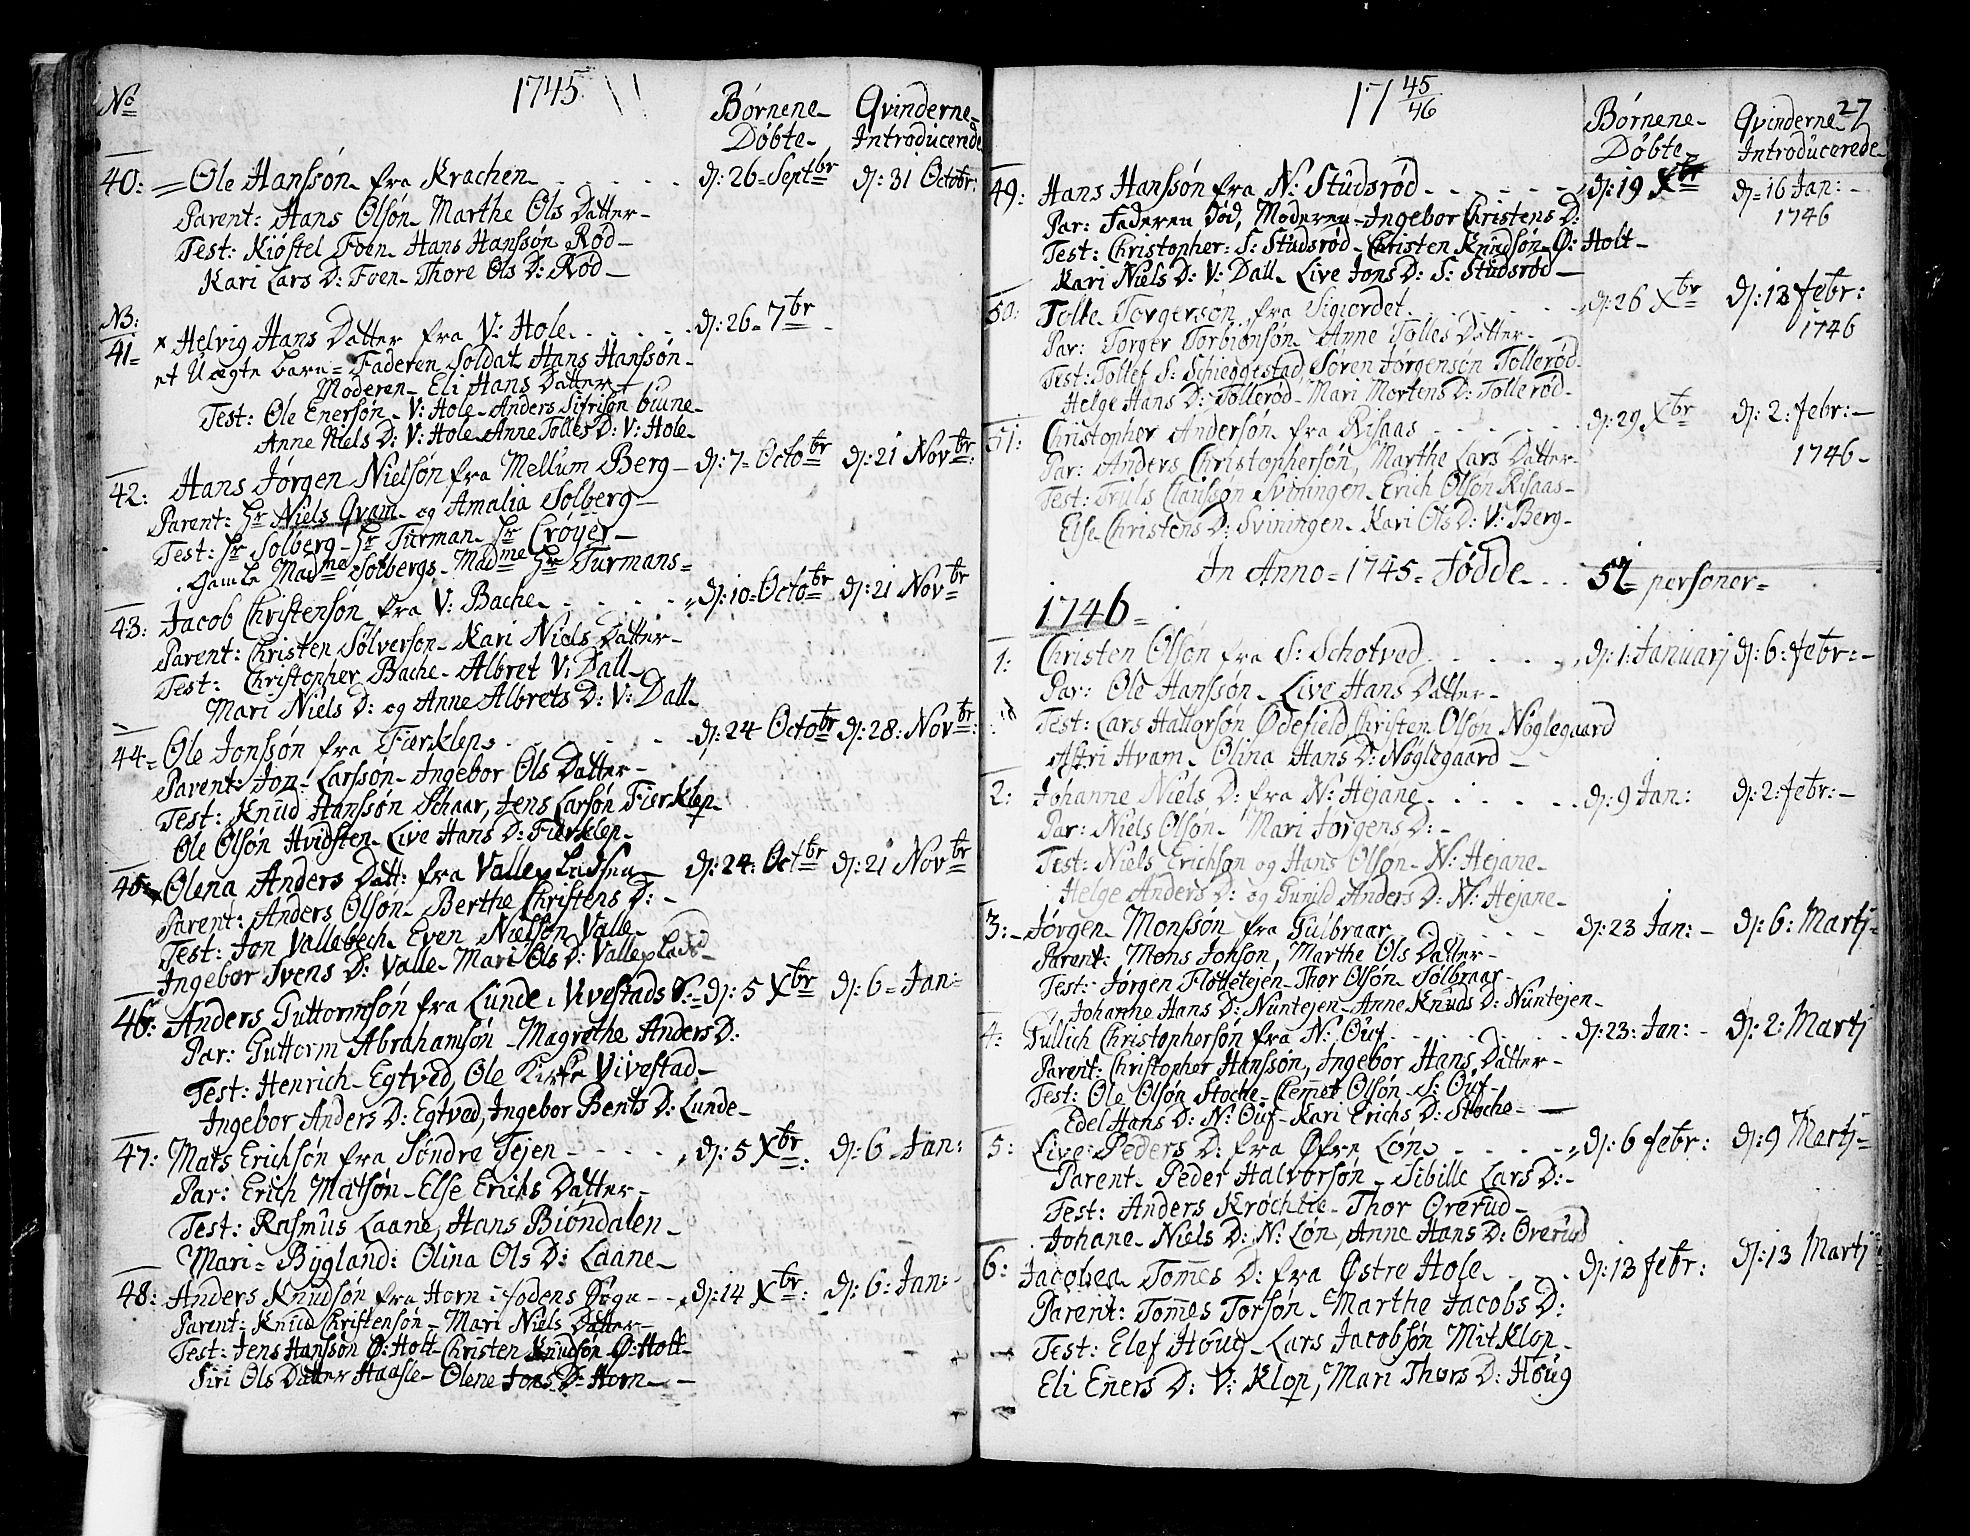 No 1745 Børnene Qvinderne
Døbte Introducerede
40: Ole Hanssøn fra Krachen d: 26 Septbr d: 31 Octobr:
Parent: Hans Olsøn Marthe Ols Datter
Test: Kiøstel Foen Hans Hanssøn Rød
Kari Lars D: Foen Thore Ols D: Rød
NB:
41 x Helvig Hans Datter fra V: Hole d: 26 7br
et Uægte barn Faderen Soldat Hans Hanssøn
Moderen Eli Hans Datter
Test: Ole Enersøn V: Hole Anders Sifrisøn biune
Anne Niels D: V: Hole Anne Tolles D: V: Hole
42: Hans Jørgen Nielsøn fra Mellum Berg d: 7 Octobr d: 21 Novbr:
Parent: Hr Niels Qvam og Amalia Solberg
Test: Hr Solberg Hr Turman Hr Croyer
Gamle Madme Solbergs Madme Hr Turmans
43: Jacob Christensøn fra V: Bache d: 10 Octobr d: 21 Novbr
Parent: Christen Sølversøn Kari Niels Datter
Test: Christopher Bache Albret V: Dall
Mari Niels D: og Anne Albrets D: V: Dall
44 Ole Jonssøn fra Fierklep d: 24 Octobr d: 28: Novbr:
Parent: Jon Larssøn Ingebor Ols Datter
Test: Knud Hanssøn Schaar, Jens Larsøn Fierklep
Ole Olsøn Hvidsten Live Hans D: Fierklep
45 Olena Anders Datt: fra Vallepladsen d: 24: Octbr d: 21 Novbr
Parent: Anders Olsøn Berthe Christens D:
Test: Jon Vallebech Even Nielsøn Valle
Ingebor Ivens D: Valle Mari Ols D: Valleplads
46: Anders Guttormsøn fra Lunde i Vivestads S: d: 5 Xbr d: 6 Jan:
Par: Guttorm Abrahamsøn Magrethe Anders D:
Test: Henrich Egtved, Ole Kirke Vivestad
Ingebor Anders D: Egtved, Ingebor Bents D: Lunde
47: Mats Erichsøn fra Søndre Tejen d: 5 Xbr: d: 6 Jan:
Par: Erich Matsøn Else Erichs Datter
Test: Rasmus Laane, Hans Biøndalen
Mari Bygland: Olina Ols D: Laane
48: Anders Knudsøn fra Horn i Sodens Sogn d: 14 Xbr: d: 6: Jan:
Parent: Knud Christensøn Mari Niels Datter
Test: Jens Hanssøn Ø: Holt Christen Knudsøn Ø: Holt
Siri Ols Datter Haasle Olene Jons D: Horn
17 45/46 Børnene Qvinderne 27
Døbte Introducerede
49: Hans Hanssøn fra N: Studsrød d: 19 Xbr d: 16 Jan:
1746
Par: Faderen død, Moderen Ingebor Christens D:
Test: Christopher: S: Studsrød Christen Knudsøn Ø: Holt
Kari Niels D: V: Dall Live Jons D: S: Studsrød
50: Tolle Torgersøn fra Sigiordet d: 26 Xbr d: 13 febr:
1746
Par: Torger Torbiønsøn Anne Tolles Datter
Test: Tollef S: Schieggestad, Søren Jørgensøn Tollerød
Helge Hans D: Tollerød Mari Mortens D: Tollerød
51: Christopher Andersøn fra Risaas d: 29 Xbr d: 2: febr:
1746
Par: Anders Christophersøn, Marthe Lars Datter
Test: Truls Claussøn Sviningen Erich Olsøn Risaas
Else Christens D: Sviningen Kari Ols D: V: Berg
In Anno 1745 Fødde 51 personer
1746
1: Christen Olsøn fra S: Schotved d: 1: Januarj d: 6: febr:
Par: Ole Hanssøn Live Hans Datter
Test: Lars Hallorsøn Ødefield, Christen Olsøn Nøglegaard
Astri Hvam Olina Hans D: Nøglegaard
2: Johanne Niels D: fra N: Hejane d: 9 Jan: d: 2: febr:
Par: Niels Olsøn Mari Jørgens D:
Test: Niels Erichsøn og Hans Olsøn N: Hejane
Helge Anders D: og Gunild Anders D: N: Hejane
3: Jørgen Monssøn fra Gulbraar d: 23 Jan: d: 6: Martj
Parent: Mons Jonsøn, Marthe Ols Datter
Test: Jørgen Flottetejen Thor Olsøn Sølbraar
Johanne Hans D: Nuntejen Anne Knuds D: Nuntejen
4: Gullich Christophersøn fra N: Ouf d: 23: Jan: d: 2: Martj
Parent: Christopher Hanssøn, Ingebor Hans Datter
Test: Ole Olsøn Stoche Clemet Olsøn S: Ouf
Edel Hans D: N: Ouf Kari Erichs D: Stoche
5: Live Peders D: fra Øfre Løn d: 6 febr: d: 9 Martj
Parent Peder Halvorsøn Sibille Lars D:
Test: Anders Krøchlie Thor Orerud
Johane Niels D: N: Løn, Anne Hans D: Orerud
6: Jacobea Tom̃es D: fra Østre Hole d: 13 febr: d: 13 Martj
Parent: Tom̃es Torsøn Marthe Jacobs D:
Test: Elef Houg Lars Jacobsøn MitKlop
Eli Eners D: V: Klop, Mari Thors D: Houg